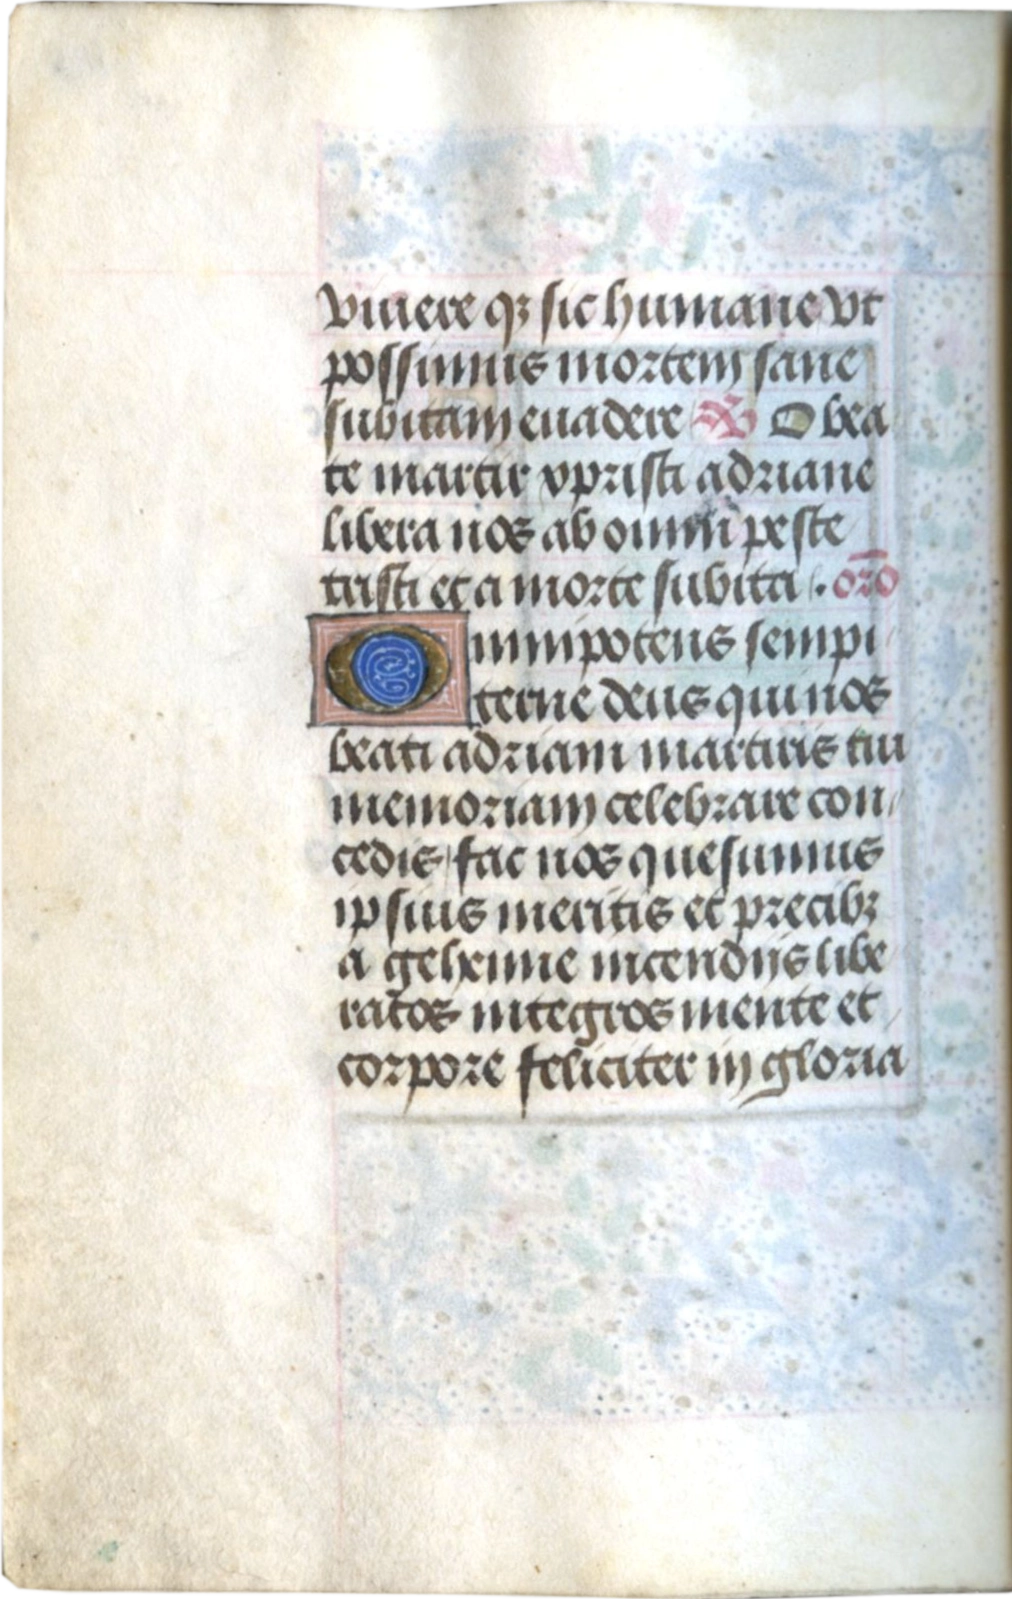 viuere qꝫ sic humane vt
possimus mortem sane
subitam euadere ℟ O bea
te martir xpristi adriane
libera nos ab omni peste
tristi et a morte subita . oro̅
Omnipotens sempi
terne deus qui nos
beati adriani martiris tui
memoriam celebrare con
cedis fac nos quesumus
ipsius meritis et precibꝫ
a gehenne incendijs libe
ratos integros mente et
corpore feliciter in gloria